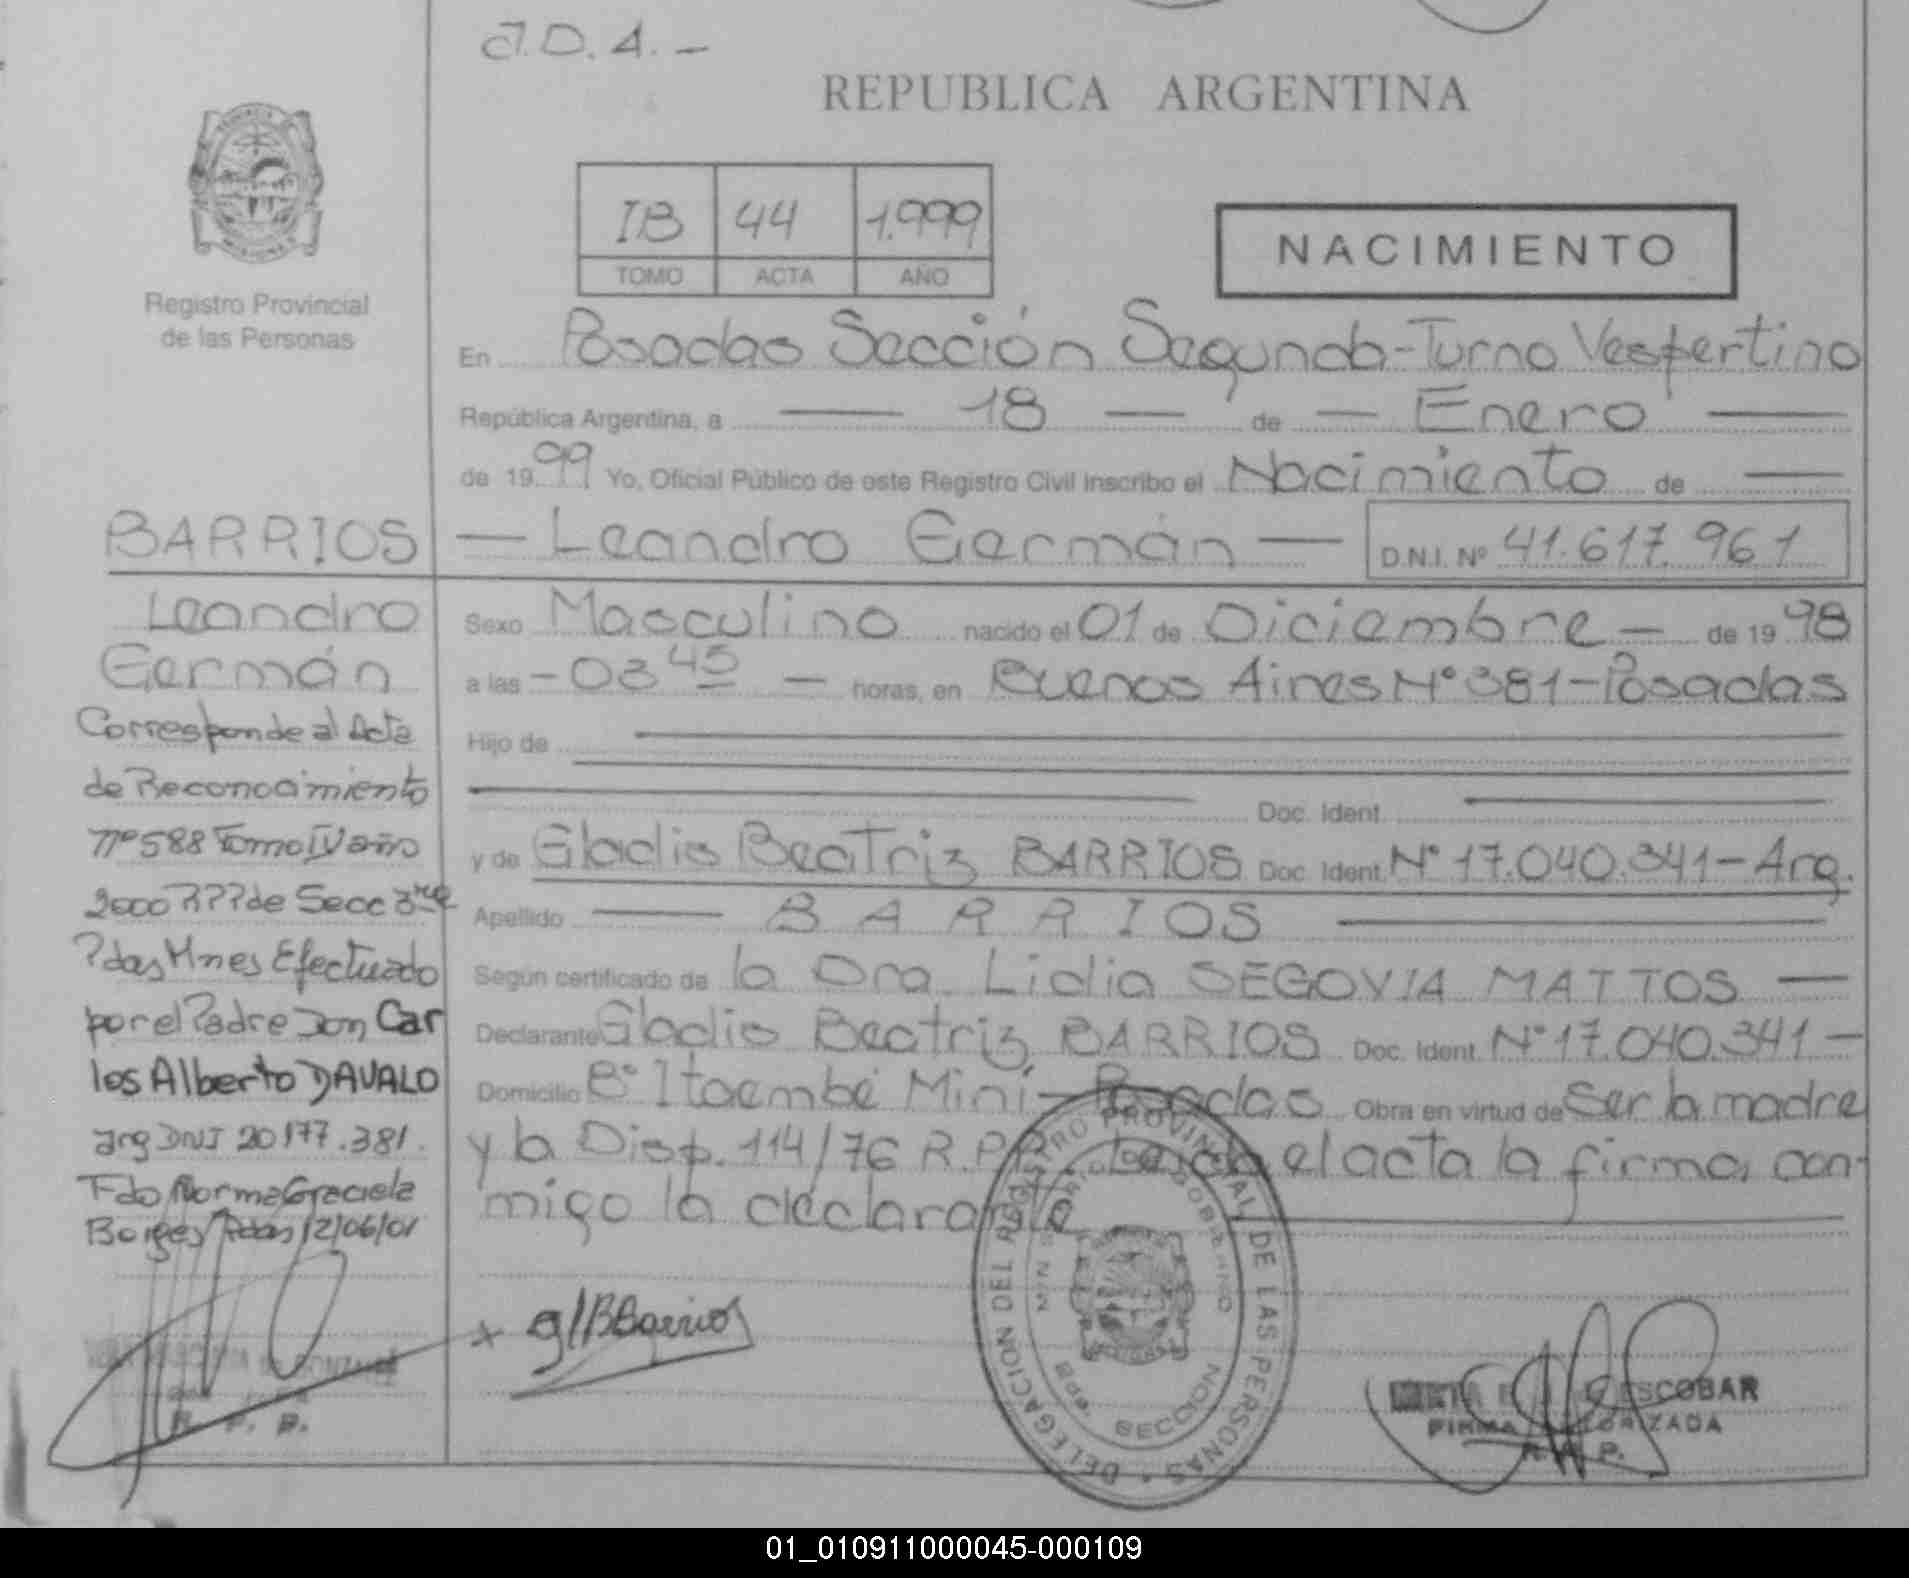 J.D.A.-
REPUBLICA ARGENTINA
IB 44 1.999
TOMO ACTA AÑO
NACIMIENTO
Registro Provincial
de las Personas
En Posadas Sección Segunda-Turno Vespertino
República Argentina, a 18 de Enero
de 1999 Yo, Oficial Público de este Registro Civil inscribo el Nacimiento de
Leandro Germán D.N.I. Nº 41.617.961
Sexo Masculino nacido el 01 de Diciembre de 1998
a las 03 45 horas, en Buenos Aires Nº 381-Posadas
Hijo de
Doc. Ident.
y de Gladis Beatriz BARRIOS Doc. Ident. Nº 17.040.341-Arg.
Apellido BARRIOS
Según certificado de la Dra. Lidia SEGOVIA MATTOS
Declarante Gladis Beatriz BARRIOS Doc. Ident. Nº 17.040.341-
Domicilio Bº Itaembé Miní-Posadas Obra en virtud de Ser la madre
y la Disp. 114/76 R.P.P. Leída el acta la firma con-
migo la declarante
BARRIOS
Leandro
Germán
Corresponde al Acta
de Reconocimiento
nº 588 Tomo IV año
2000 RPP de Secc 3ra
Pdas Mnes Efectuado
por el Padre Don Car
los Alberto DAVALO
arg DNI 20177.381.
Fdo Norma Graciela
Borges Pdas 12/06/01
R. P. P.
glBBarrios
DELEGACION DEL REGISTRO PROVINCIAL DE LAS PERSONAS
SECCION
ESCOBAR
FIRMA AUTORIZADA
R. P. P.
01_010911000045-000109